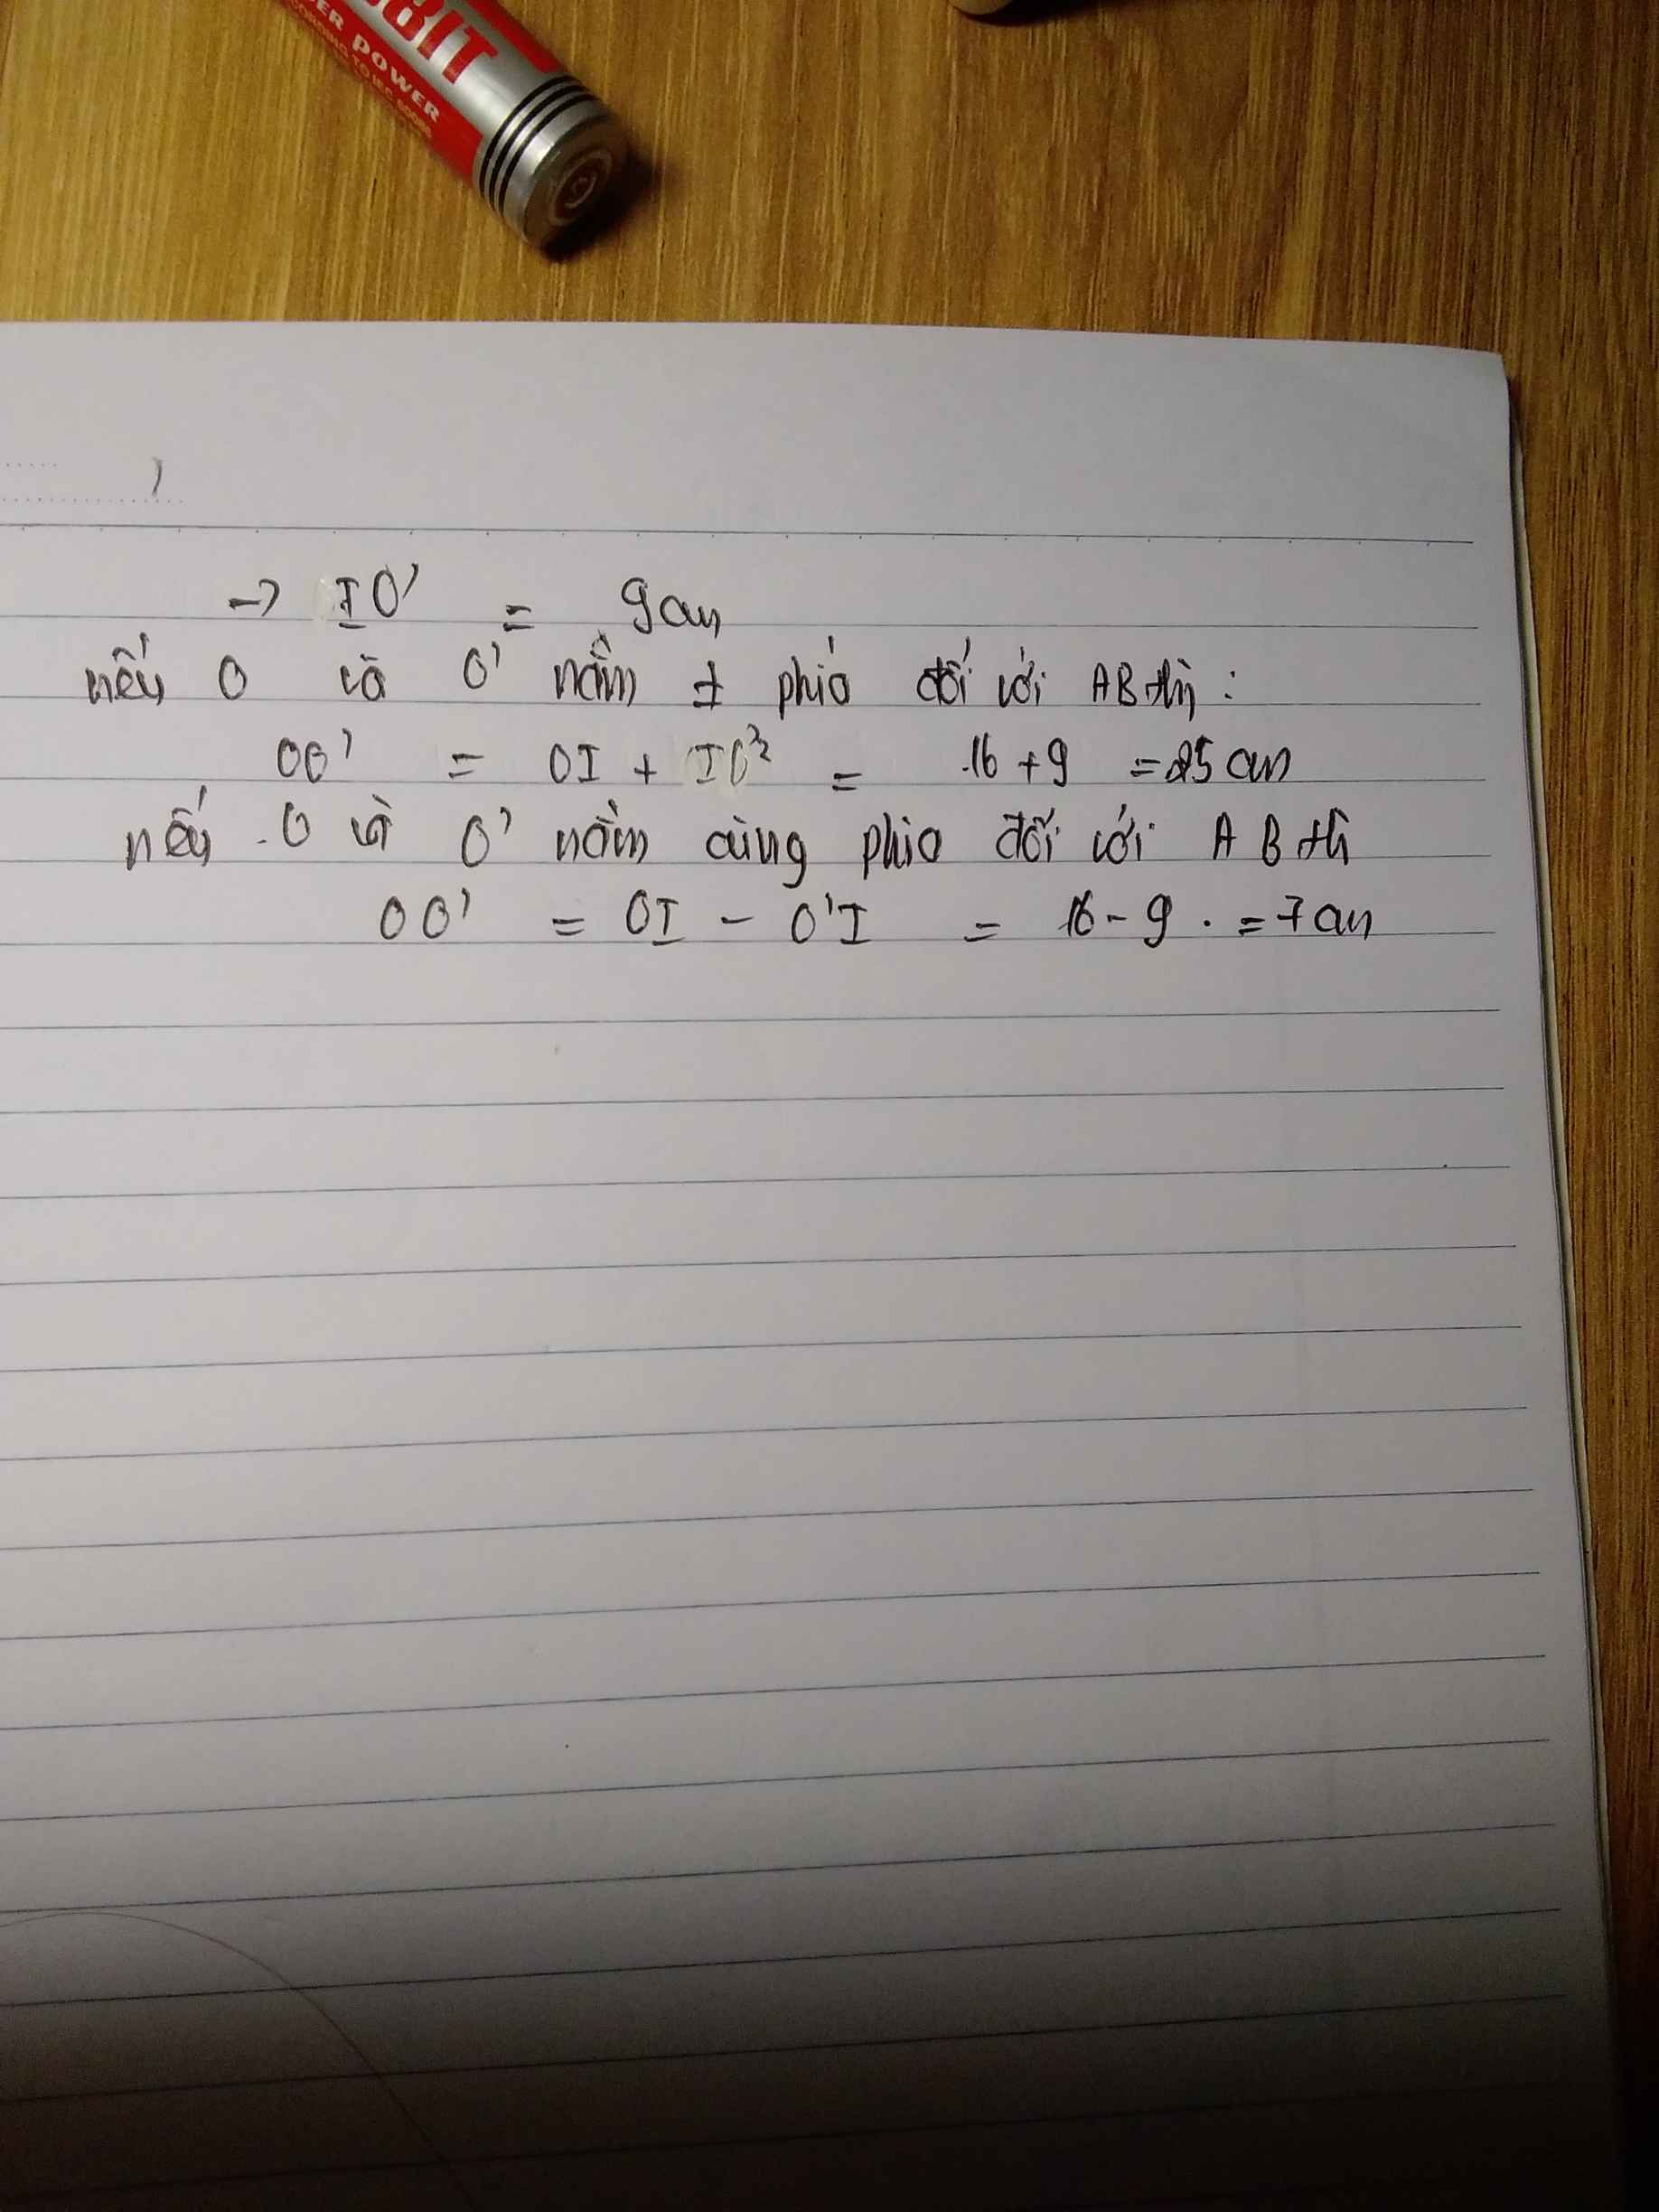 BIT
ER POWER
CORDING TO IEC 60086
)
→ IO' = 9cm
nếu O và O' nằm ≠ phía đối với AB thì :
OO' = OI + IO' = 16 + 9 = 25 cm
nếu O và O' nằm cùng phía đối với AB thì
OO' = OI - O'I = 16 - 9 . = 7 cm